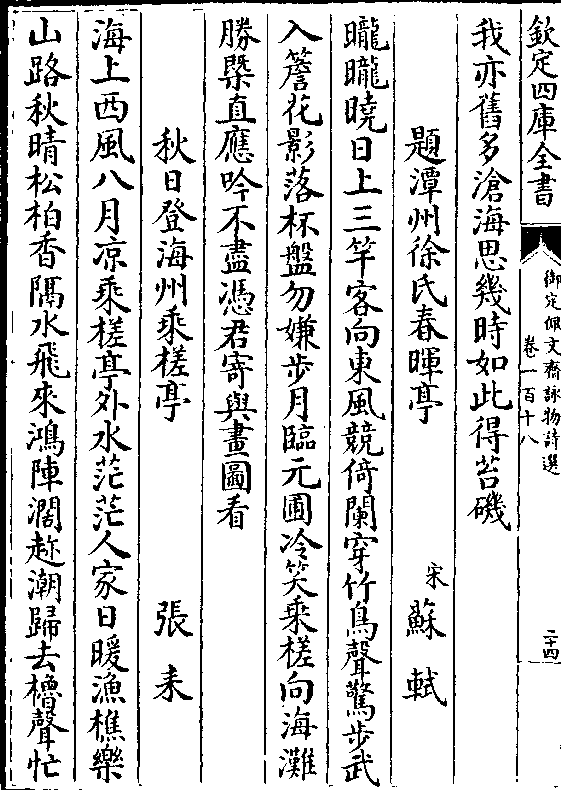 欽定四庫全書
御定佩文齋詠物詩選
卷一百十八
二十四
我亦舊多滄海思幾時如此得苔磯
題潭州徐氏春暉亭
宋
蘇軾
曨曨曉日上三竿客向東風競倚闌穿竹鳥聲驚步武
入簷花影落杯盤勿嫌步月臨元圃冷笑乘槎向海灘
勝槩直應吟不盡憑君寄與畫圖看
秋日登海州乘槎亭
張耒
海上西風八月凉乘槎亭外水茫茫人家日暖漁樵樂
山路秋晴松柏香隔水飛來鴻陣濶趂潮歸去櫓聲忙